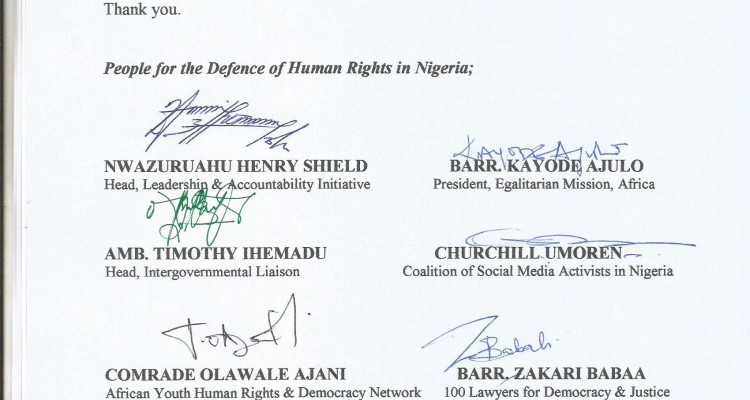 Thank you.
People for the Defence of Human Rights in Nigeria;
NWAZURUAHU HENRY SHIELD
Head, Leadership & Accountability Initiative
KAYODE AJULO
BARR. KAYODE AJULO
President, Egalitarian Mission, Africa
AMB. TIMOTHY IHEMADU
Head, Intergovernmental Liaison
CHURCHILL UMOREN
Coalition of Social Media Activists in Nigeria
COMRADE OLAWALE AJANI
African Youth Human Rights & Democracy Network
BARR. ZAKARI BABAA
100 Lawyers for Democracy & Justice